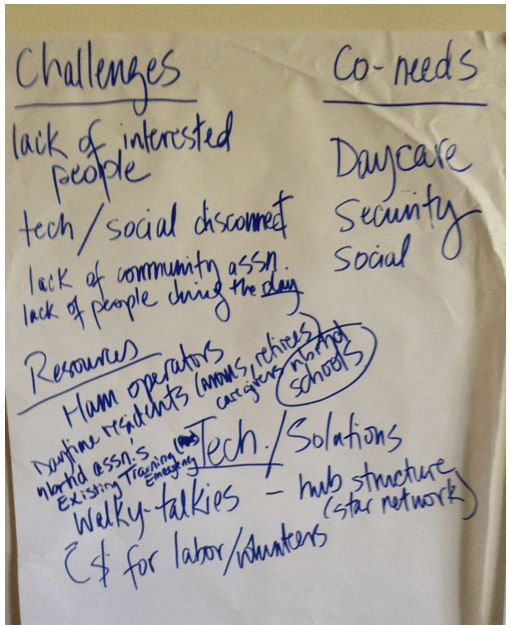 Challenges
lack of interested
people
tech/social disconnect
lack of community assn.
lack of people during the day
Co-needs
Daycare
Security
Social
Resources
Ham operators
Daytime residents (moms, retirees)
caregivers nbrhd
schools
nbrhd assn.'s
Existing Training
Emergency
Tech./Solutions
Walky-talkies - hub structure
(star network)
$ for labor/volunteers